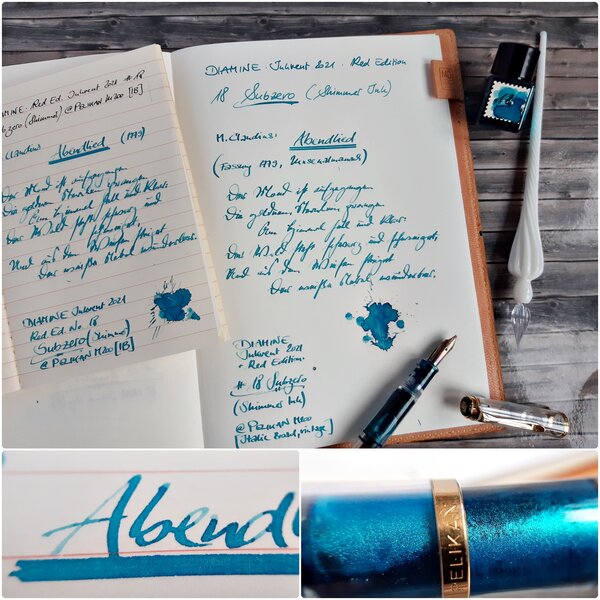 DIAMINE Inkvent 2021 · Red Edition
18 Subzero (Shimmer Ink)
M. Claudius: Abendlied
(Fassung 1779, Musenalmanach)
Der Mond ist aufgegangen
Die goldnen Sternlein prangen
Am Himmel hell und klar.
Der Wald steht schwarz und schweiget,
Und aus den Wiesen steiget
Der weiße Nebel wunderbar.
DIAMINE
Inkvent 2021
· Red Edition ·
# 18 Subzero
(Shimmer Ink)
@ PELIKAN M200
[Italic Broad, vintage]
DIAMINE: Red Ed. Inkvent 2021 # 18
Subzero (Shimmer) @ PELIKAN M200 [IB]
Claudius Abendlied (1779)
Der Mond ist aufgegangen
Die goldnen Sternlein prangen
Am Himmel hell und klar.
Der Wald steht schwarz und
Und aus den Wiesen steiget
Der weiße Nebel wunderbar.
DIAMINE Inkvent 2021
Red Ed. No. 18
Subzero (Shimmer)
@ PELIKAN M200 [IB]
Abendli
PELIKAN